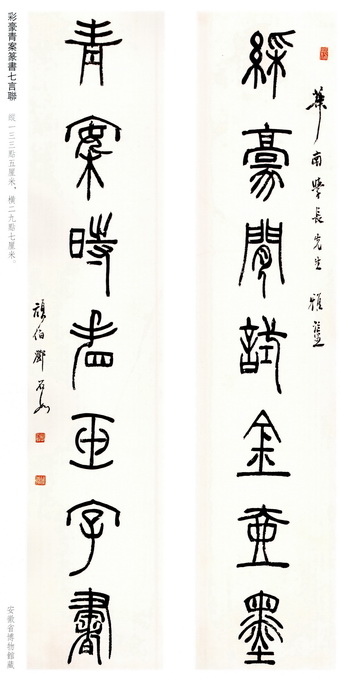 華南學長先生 雅鑒
綵豪閒試金壺墨
青案時看字書
頑伯鄧石如
彩豪青案篆書七言聯 縱一三三點五厘米,橫二九點七厘米。
安徽省博物館藏